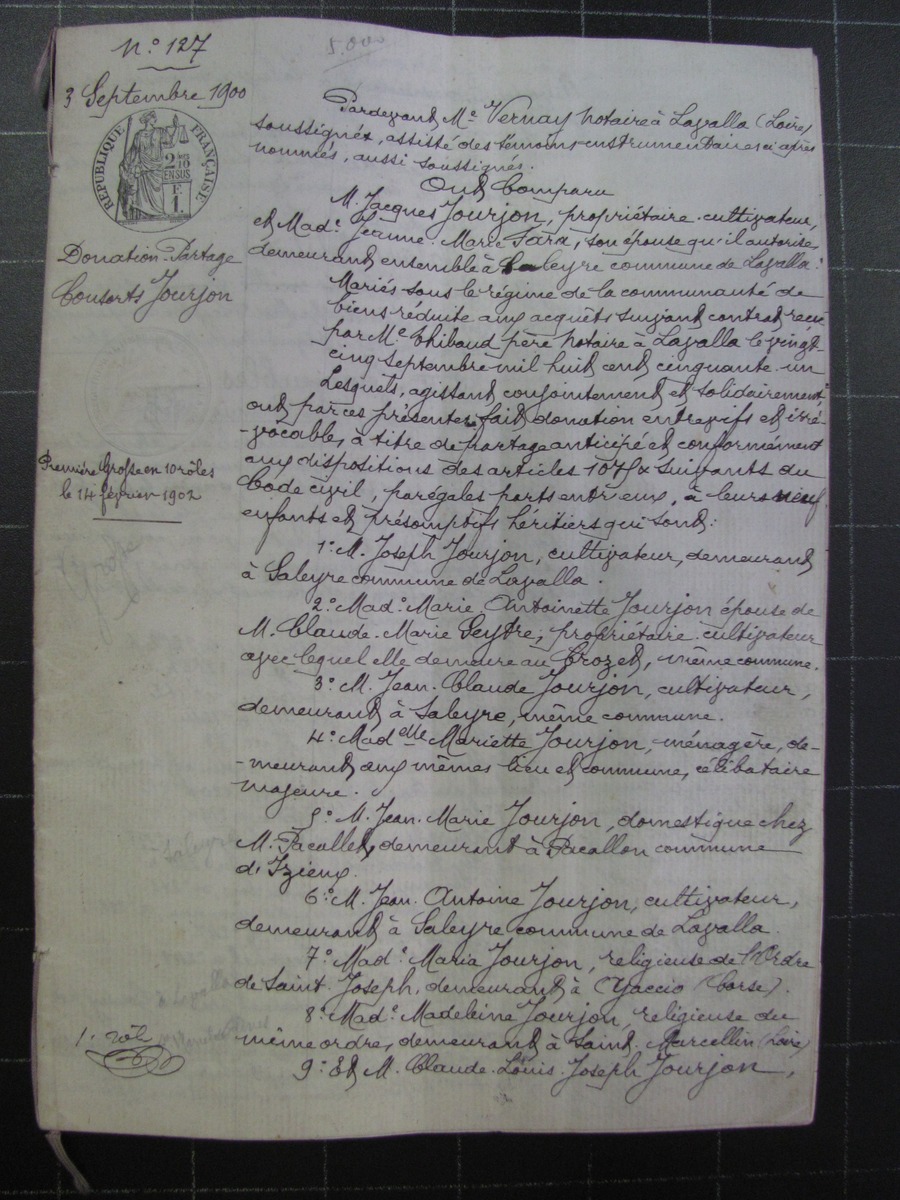 N.° 127
5.000
3 Septembre 1900
RÉPUBLIQUE FRANÇAISE
2/10 EN SUS
F. 1.
Donation-Partage
Consorts Jourjon
Première Grosse en 10 rôles
le 14 février 1902
1. rôl
Pardevant M.e Vernay notaire à Lavalla (Loire)
soussigné, assisté des témoins instrumentaires ci après
nommés, aussi soussignés.
Ont Comparu
M. Jacques Jourjon, propriétaire-cultivateur,
et Mad.e Jeanne-Marie son épouse qu'il autorise,
demeurant ensemble à Saleyre commune de Lavalla.
Mariés sous le régime de la communauté de
biens réduite aux acquêts suivant contrat reçu
par M.e Thibaud père notaire à Lavalla le vingt-
cinq septembre mil huit cent cinquante-un
Lesquels, agissant conjointement et solidairement,
ont par ces présentes fait donation entre vifs et irré-
-vocable, à titre de partage anticipé et conformément
aux dispositions des articles 1075 & suivants du
Code civil, par égales parts entr'eux, à leurs neuf
enfants et présomptifs héritiers qui sont:
1.° M. Joseph Jourjon, cultivateur, demeurant
à Saleyre commune de Lavalla.
2.° Mad.e Marie Antoinette Jourjon épouse de
M. Claude-Marie Seytre, propriétaire-cultivateur
avec lequel elle demeure au Crozet, même commune.
3.° M. Jean-Claude Jourjon, cultivateur,
demeurant à Saleyre, même commune.
4.° Madelle Mariette Jourjon, ménagère, de-
-meurant aux mêmes lieu et commune, célibataire
majeure.
5.° M. Jean-Marie Jourjon, domestique chez
M. Pacallet, demeurant à Pacallon commune
d'Izieux.
6.° M. Jean-Antoine Jourjon, cultivateur,
demeurant à Saleyre commune de Lavalla.
7.° Mad.e Maria Jourjon, religieuse de l'Ordre
de Saint-Joseph, demeurant à Ajaccio (Corse).
8.° Mad.e Madeleine Jourjon, religieuse du
même ordre, demeurant à Saint-Marcellin (Loire)
9.° Et M. Claude-Louis-Joseph Jourjon,